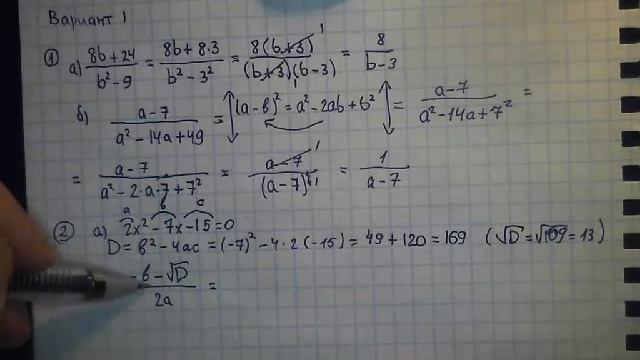 Вариант 1
① а) (8b+24)/(b²-9) = (8b+8·3)/(b²-3²) = 8(b+3)¹/((b+3)(b-3))₁ = 8/(b-3)
б) (a-7)/(a²-14a+49) = ↕(a-b)²=a²-2ab+b²↕ = (a-7)/(a²-14a+7²) =
= (a-7)/(a²-2·a·7+7²) = (a-7)¹/(a-7)²₁ = 1/(a-7)
a b c
② а) 2x²-7x-15=0
D=b²-4ac=(-7)²-4·2(-15)=49+120=169 (√D=√169=13)
(-b-√D)/(2a) =